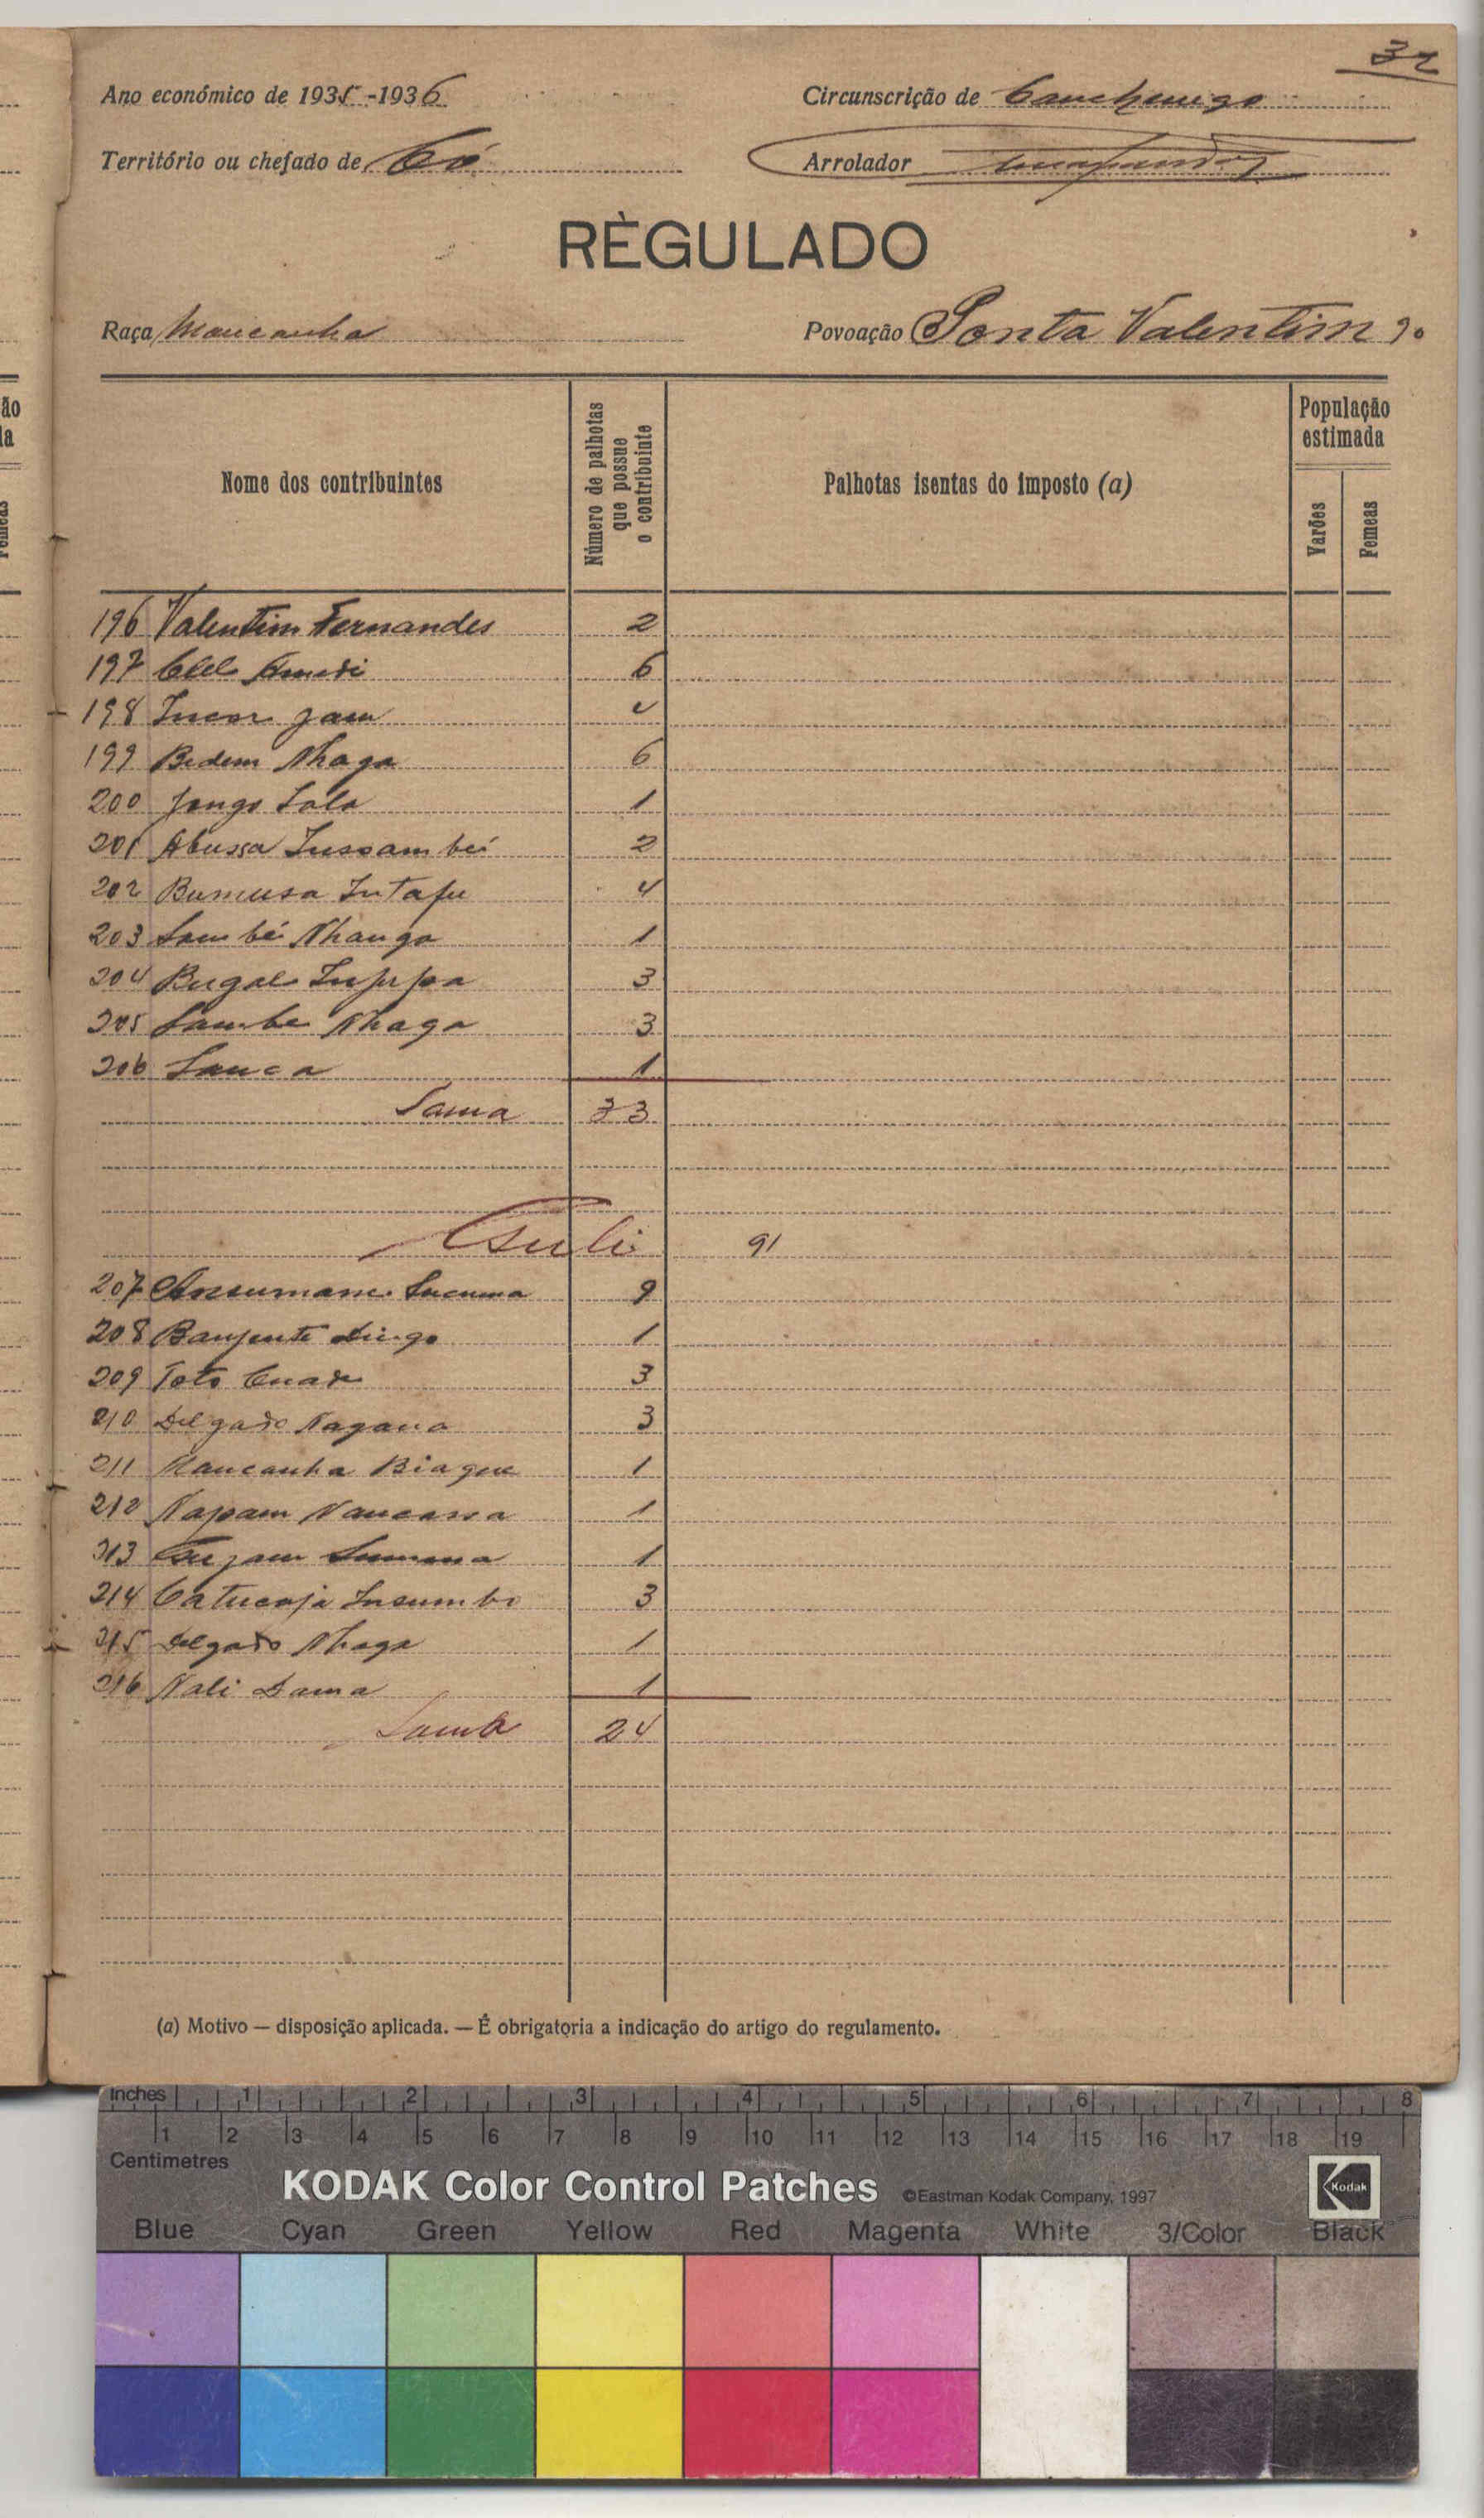 32
Ano económico de 1935-1936
Circunscrição de Canchungo
Território ou chefado de Có
Arrolador
RÈGULADO
Raça Mancanha
Povoação Ponta Valentim 90
Nome dos contribuintes
Número de palhotas que possue o contribuinte
Palhotas isentas do imposto (a)
População estimada
Varões
Femeas
196 Valentim Fernandes 2
197 6
198
199 Bedem Nhaga 6
200 Jongo 1
201 Abussa 2
202 Bumussa Intafu 4
203 Sambé Nhanga 1
204 Bugale 3
205 Sambe Nhaga 3
206 Sanca 1
Soma 33
91
207 Ansumane 9
208 1
209 Toto 3
210 Delgado Nagana 3
211 Mancanha Biague 1
212 Napam 1
213 1
214 Insumbo 3
215 Delgado Nhaga 1
216 Nali Dama 1
Soma 24
(a) Motivo — disposição aplicada. — É obrigatoria a indicação do artigo do regulamento.
Inches 1 2 3 4 5 6 7 8
1 2 3 4 5 6 7 8 9 10 11 12 13 14 15 16 17 18 19
Centimetres
KODAK Color Control Patches ©Eastman Kodak Company, 1997
Kodak
Blue Cyan Green Yellow Red Magenta White 3/Color Black